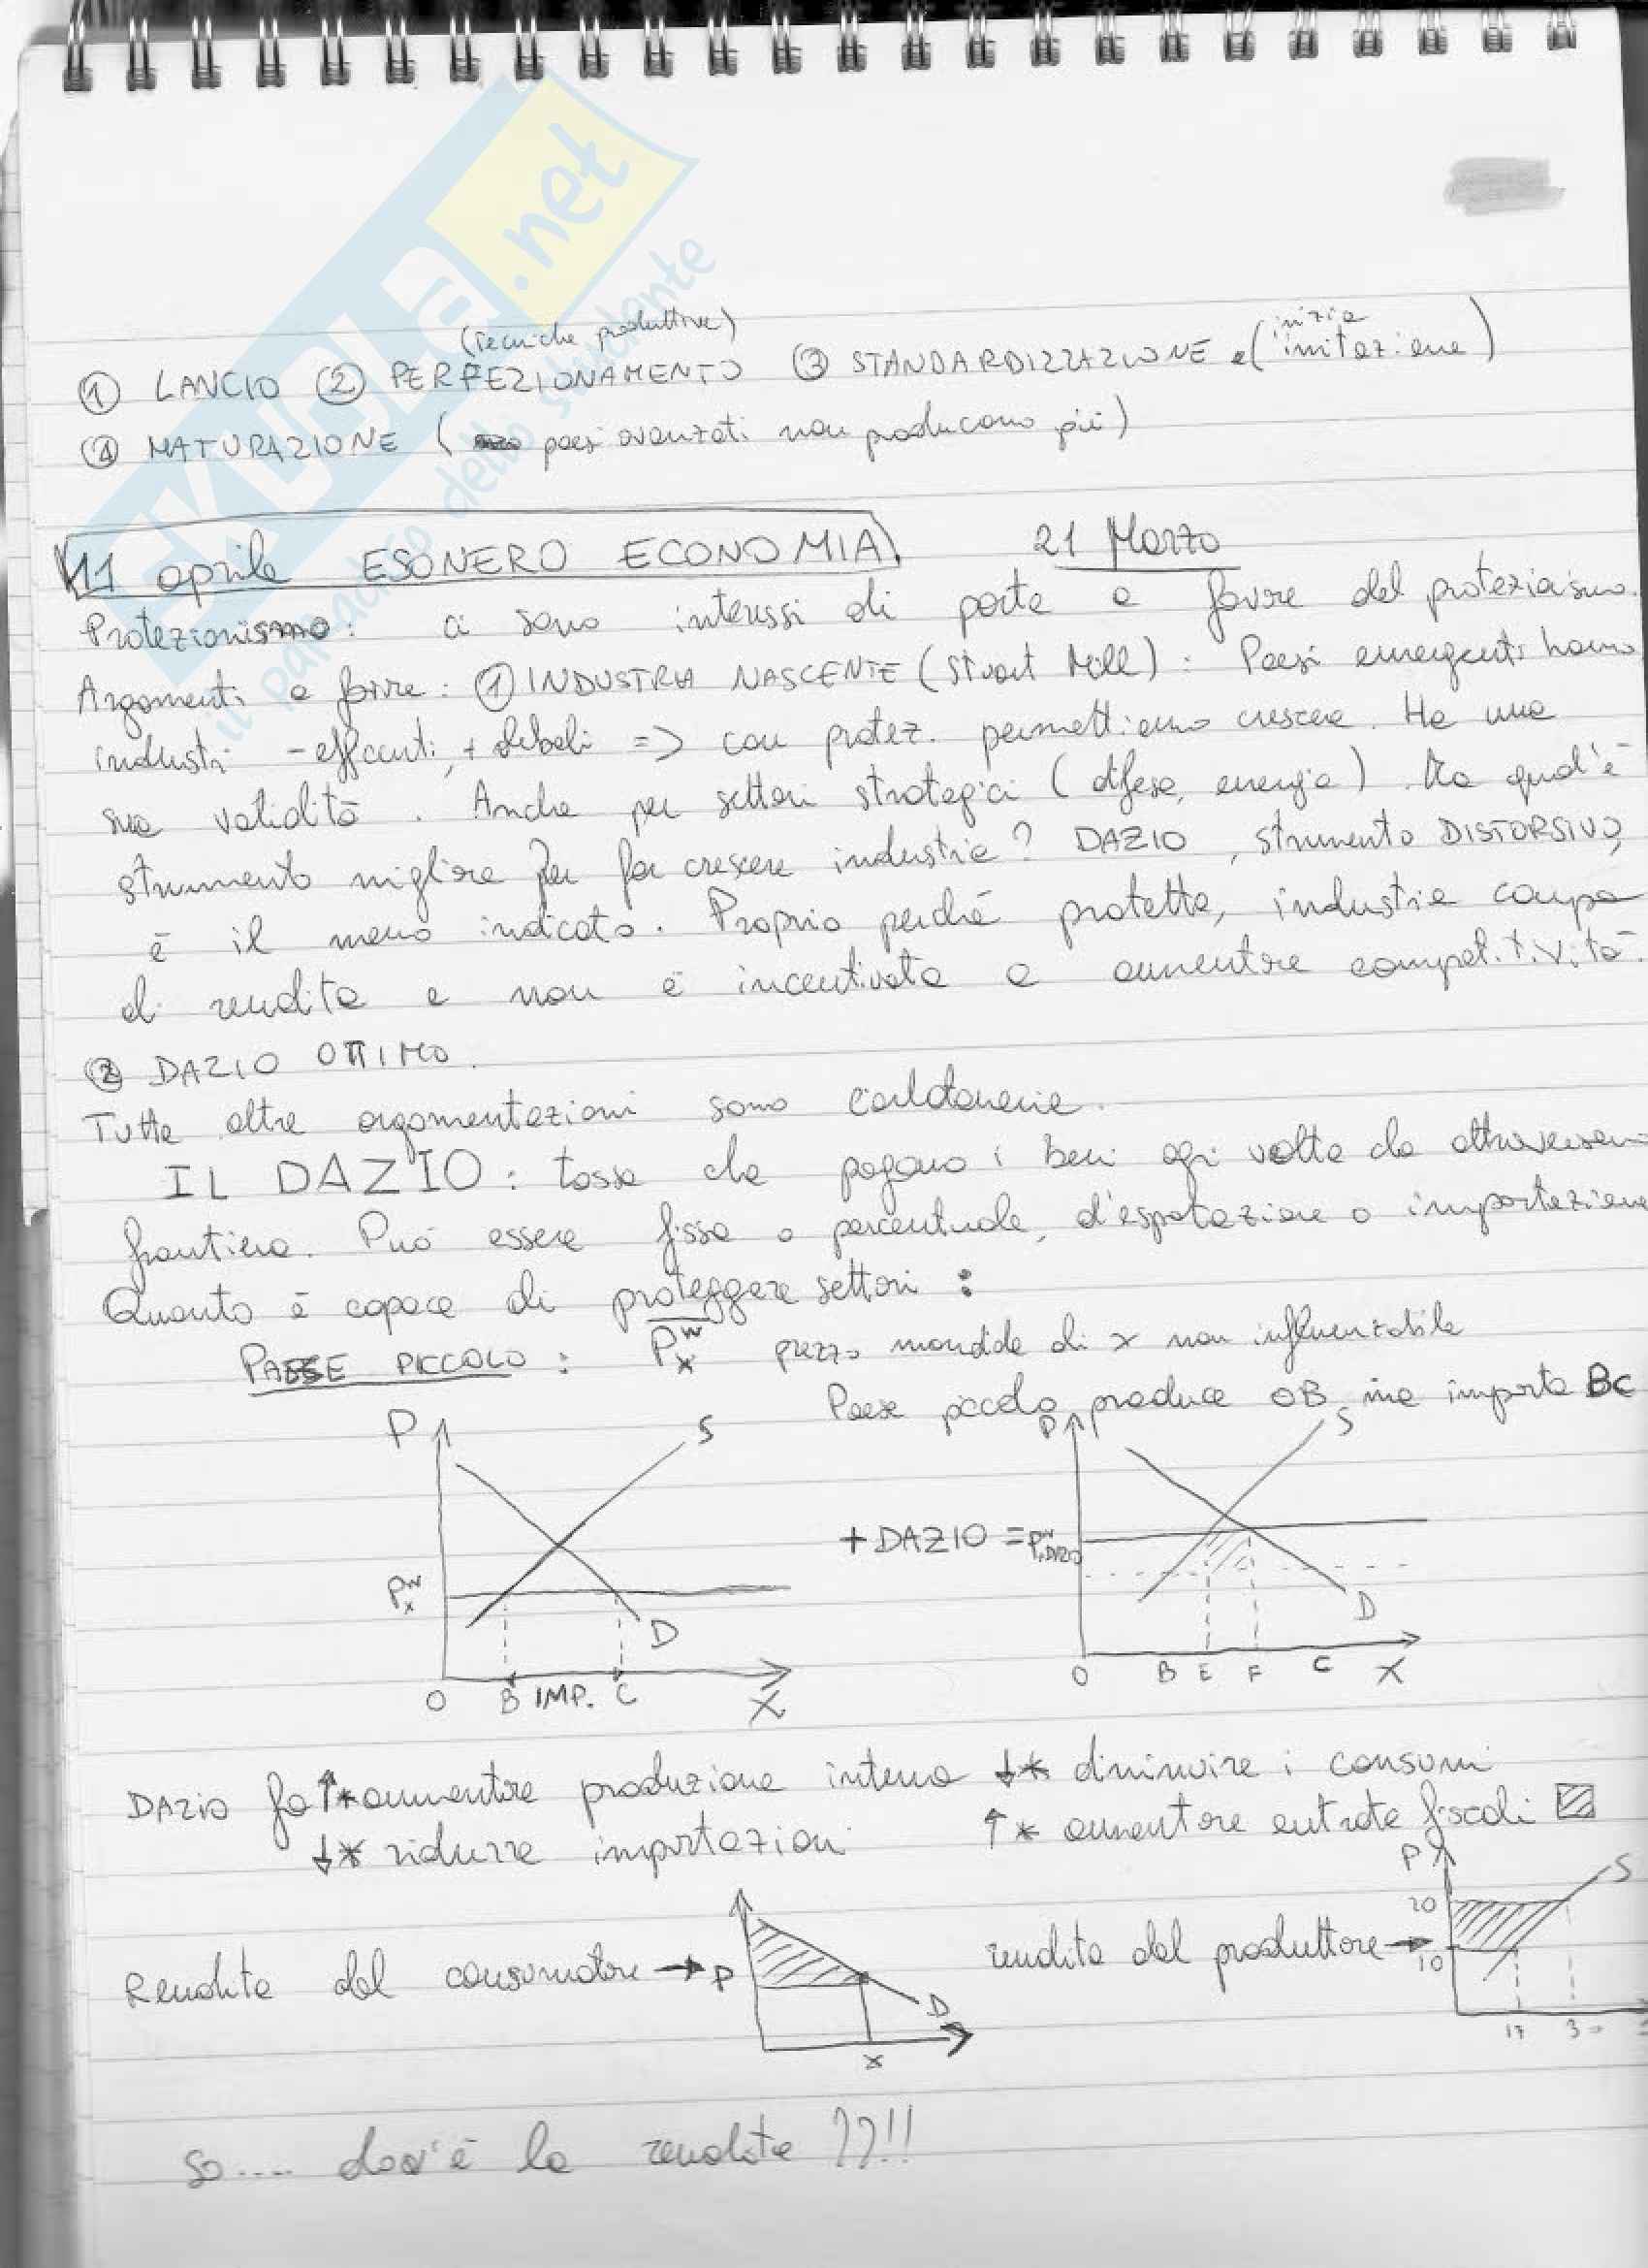 SKUOLA.net
il paradiso dello studente
(tecniche produttive)
① LANCIO ② PERFEZIONAMENTO ③ STANDARDIZZAZIONE e (inizia imitazione)
④ MATURAZIONE ( paesi avanzati non producono più)
11 aprile ESONERO ECONOMIA. 21 Marzo
Protezionismo: ci sono interessi di parte a favore del protezionismo.
Argomenti a favore: ① INDUSTRIA NASCENTE (Stuart Mill): Paesi emergenti hanno
industri - efficenti, + deboli => con protez. permettiamo crescere. Ha una
sua validità. Anche per settori strategici (difesa, energia). Ma qual'è
strumento migliore per far crescere industria? DAZIO, strumento DISTORSIVO,
è il meno indicato. Proprio perché protetta, industria campa
di rendita e non è incentivata a aumentare competitività.
② DAZIO OTTIMO.
Tutte altre argomentazioni sono
IL DAZIO: tassa che pagano i beni ogni volta che attraversano
frontiera. Può essere fissa o percentuale, d'esportazione o importazione
Quanto è capace di proteggere settori:
PAESE PICCOLO: Pxʷ prezzo mondiale di x non influenzabile
Paese piccolo produce OB ma importa BC
P S Pxʷ D O B IMP. C X
+ DAZIO = Pʷ+DAZIO P S D O B E F C X
DAZIO fa ↑* aumentare produzione interna ↓* diminuire i consumi
↓* ridurre importazioni ↑* aumentare entrate fiscali
Rendita del consumatore → P D x
rendita del produttore → P S 20 10 17 30
So.... dov'è la rendita ??!!